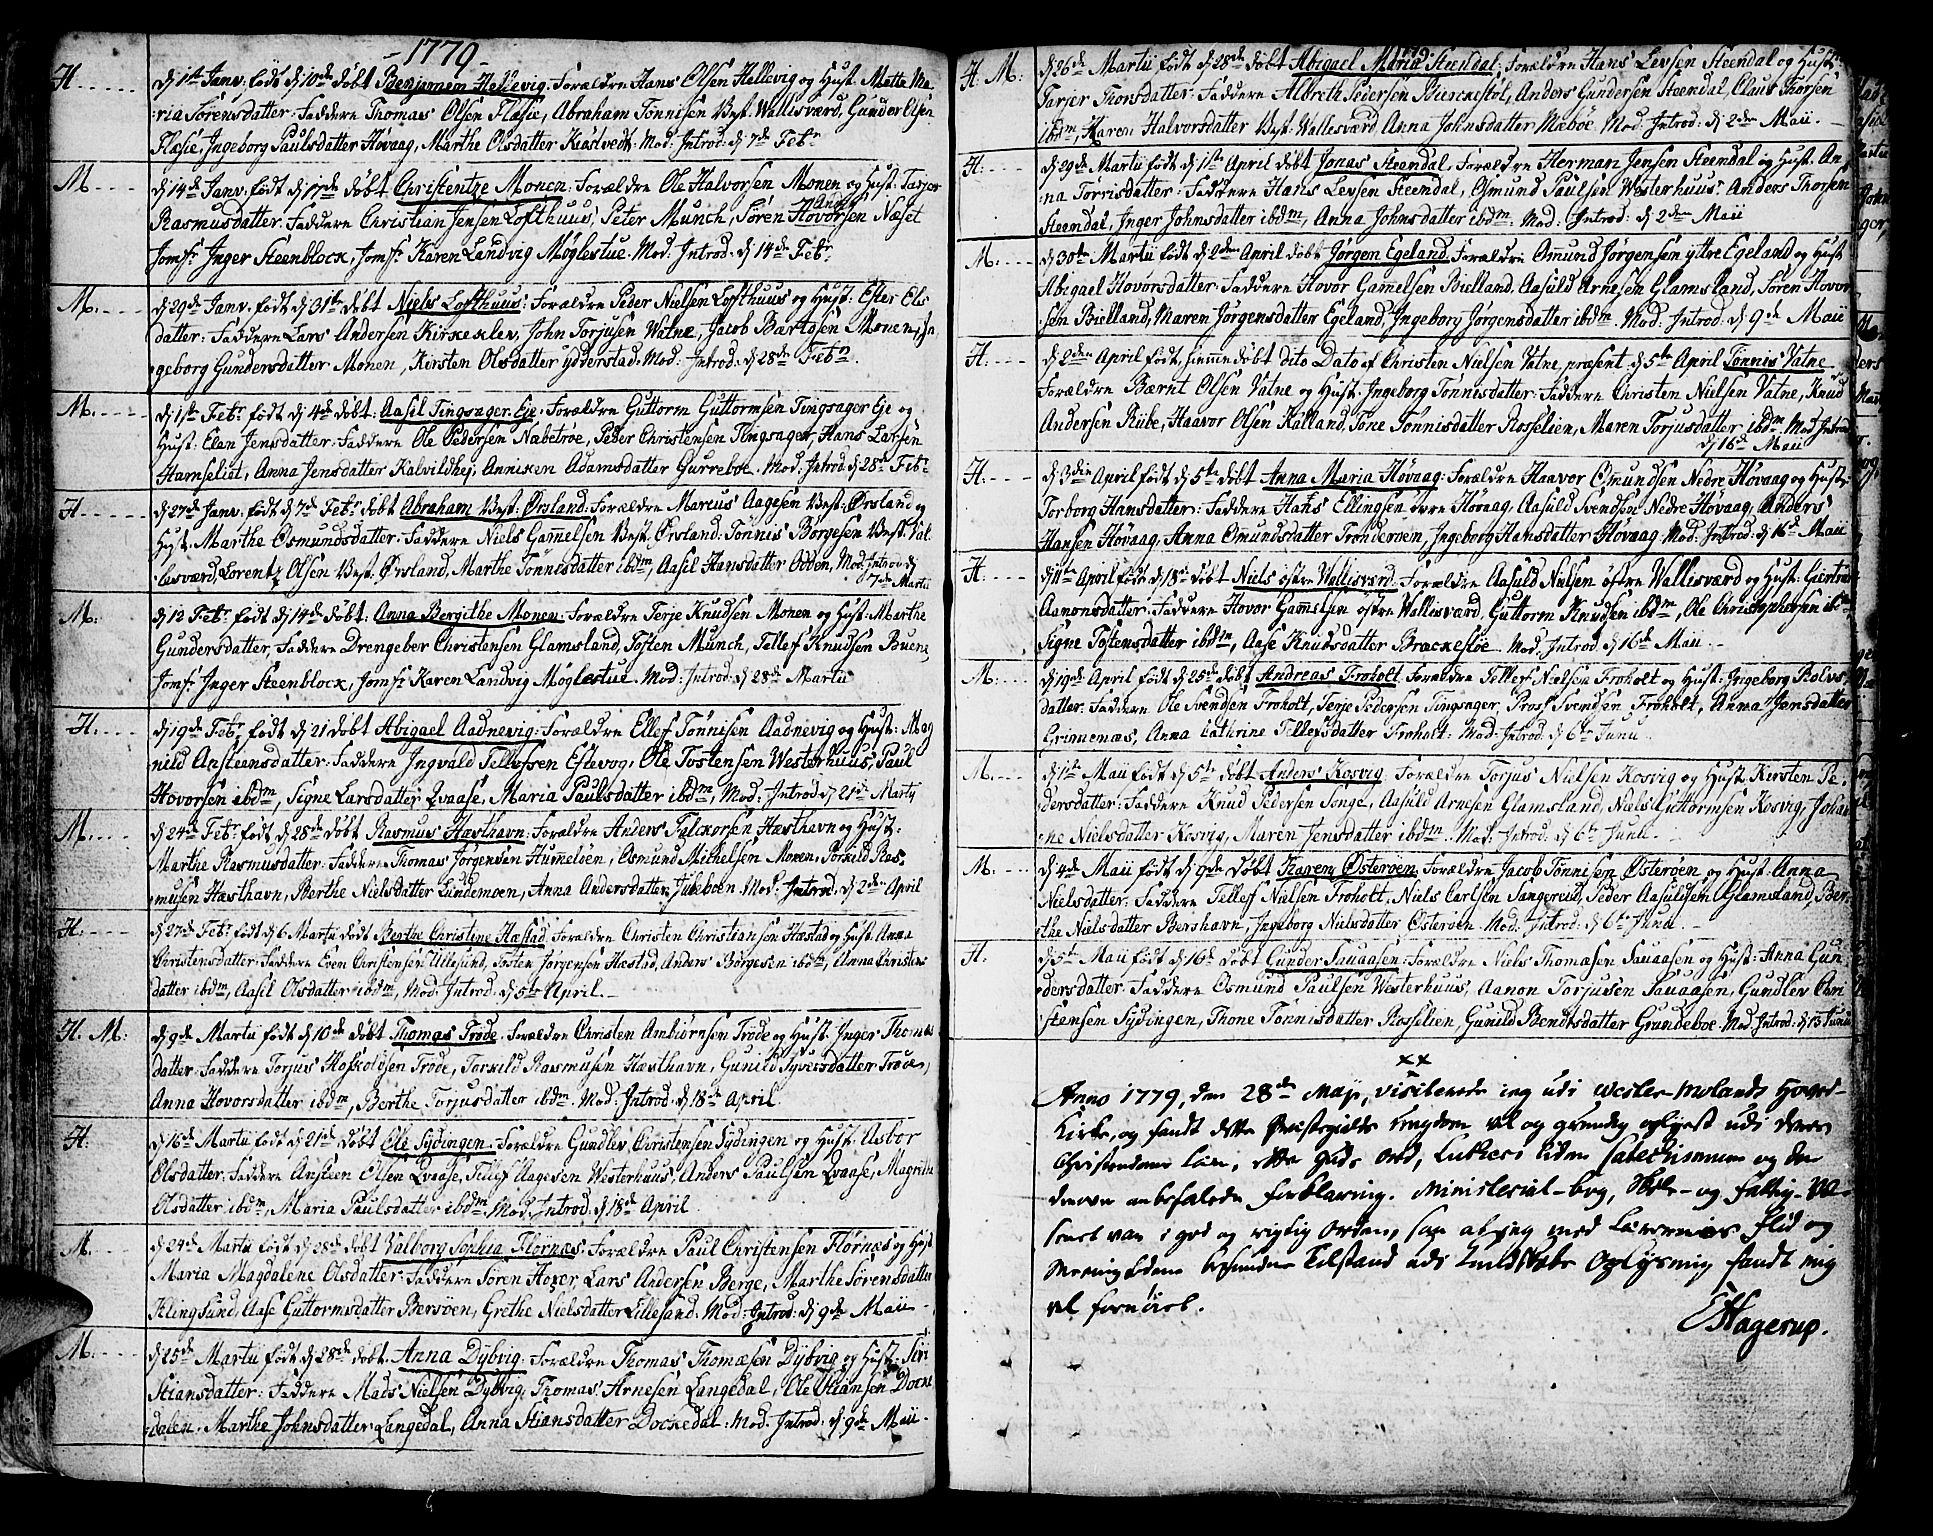 - 1779 -
H.....
d 1ste Janv: født d 10de døbt Benjamem Hellevig. Forældre Hans Olsen Hallevig og Hust. Mætte Ma-
ria Sørensdatter: Faddere Thomas Olsen Flasie, Abraham Tønnisen Vest. Wallisværd, Gunder Olsen
Flasie, Ingeborg Paulsdatter Høvaag, Marthe Olsdatter Kiøstvedt: Mod: Introd: d 7de Febr
M....
d 14de Janv: født d 17de døbt Christentze Monen: Forældre Ole Halvorsen Monen og Hust: Tarjer
Rasmusdatter: Faddere Christian Jensen Lofthuus, Peter Munch, Søren Hovorsen Næset
Jomfr: Inger Steenblock, Jomfr: Karen Landvig Møglestue. Mod: Introd: d 14de Febr
M....
d 29de Janv. født d 31te døbt Niels Lofthuus: Forældre Peder Nielsen Lofthuus og Hust: Ester Els
datter: Faddere Lars Andersen Kirkeklev, John Torjusen Vatne, Jacob Bærtosen Monen, In
geborg Gundersdatter Monen, Kirsten Olsdatter ydderstad. Mod: Introd: d 28de Febr.
M....
d 1ste Febr født d 4de døbt: Aasil Tingsager Eje. Forældre Guttorm Guttormsen Tingsager Eje og
Hust: Elen Jensdatter: Faddere Ole Pedersen Næbetrøe, Peder Christensen Tingsager, Hans Larsen
Hamseliet, Anna Jensdatter Kalvildhej. Anniken Adamsdatter Gurreboe. Mod: Introd: d 28de Febr
H....
d 27de Janv. født d 7de Febr døbt Abraham Vest. Ørsland. Forældre Marcus Aagesen Vest: Ørsland og
Hust. Marthe Osmundsdatter: Faddere Niels Gamelsen Vest. Ørsland: Tønnis Borgesen Vest. Val-
lesværd, Lorentz Olsen Vest. Ørsland, Marthe Tønnisdatter ibdm, Aasil Hansdatter Odden, Mod: Introd d
7de Martii
M.
d 12 Febr født d 14de døbt: Anna Bergithe Monen: Forældre Terje Knudsen Monen og Hust: Marthe
Gundersdatter, Faddere Drengeber Christensen Glamsland, Tosten Munch, Tellef Knudsen Buene,
Jomfr Inger Steenblock, Jomfr Karen Landvig Møglestue. Mod: Introd: d 28de Martii
H.....
d 19de Febr født d 21 døbt Abigael Aadnevig: Forældre Ellef Tønnisen Aadnevig og Hust: Mag
nild Ansteensdatter: Faddere Ingvald Tellefsen Estevog, Ole Tostensen Westerhuus, Paul
Hovorsen ibdm, Signe Larsdatter Qvaase, Maria Paulsdatter ibdm, Mod: Introd d 21de Marty
M....
d 24de Febr født d 28de døbt Rasmus Hæsthavn: Forældre Anders Falckorsen Hæsthavn og Hust:
Marthe Rasmusdatter: Faddere Thomas Jørgensen Hummeløen, Osmund Michelsen Monen, Torkild Ras,
musen Hæsthavn, Berthe Nielsdatter Lindemoen, Anna Andersdatter Justøen. Mod: Introd. d 2den April
H.....
d 27de Febr født d 6 Martii døbt Berthe Christine Hæstad. Forældre Christen Christiansen Hæstad og Hust: Anna
Christensdatter: Faddere Even Christensen Ullesund, Tosten Jørgensen Hæstad, Anders Børgesen ibdm, Anna Christens
datter ibdm, Aasel Olsdatter ibdm, Mod: Introd. d 5te April.
H. M:
d 9de Martii født d 10de døbt Thomas Trøde. Forældre Christen Ambiørnsen Trøde og Hust: Inger Thomas
datter: Faddere Torjus Hoskoldsen Trøde, Torkild Rasmusen Hæsthavn, Gunild Syversdatter Trøde,
Anna Hovorsdatter ibdm, Berthe Torjusdatter ibdm. Mod: Introd. d 18de April
H.
d 16de Martii født d 21de døbt Ole Sydingen. Forældre Gundlev Christensen Sydingen og Hust: Asbor
Olsdatter. Faddere Ansteen Olsen Qvaase, Tellef Aagesen Westerhuus, Anders Paulsen Qvaase, Magrithe
Olsdatter ibdm, Maria Paulsdatter ibdm. Mod. Introd. d 18de April
M....
d 24de Martii født d 28de døbt Valborg Sophia Flørnæs: Forældre Paul Christensen Flørnæs og Hust
Maria Magdalene Olsdatter: Faddere Søren Høxer, Lars Andersen Berge, Marthe Sørensdatter
Klingsund, Aase Guttormsdatter Bersøen, Grethe Nielsdatter Lillesand. Mod: Introd: d 9de Maii
M....
d 25de Martii født d 28de døbt. Anna Dybvig. Forældre Thomas Thomæsen Dybvig og Hust: Siri
Stiansdatter: Faddere Mads Nielsen Dybvig, Thomas Arnesen Langedal, Ole Stiansen Docke
dalen. Marthe Johnsdatter Langedal, Anna Stiansdatter Dockedal: Mod: Introd: d 9de Maii
1779.
H. M:
d 26de Martii født d 28de døbt Abigael Maria Steendal. Forældre Hans Levsen Steendal og Hust:
Tarjer Thorsdatter: Faddere Albreth Pedersen Birckestøl, Anders Gundersen Steendal, Claus Thorsen
ibdm, Karen Halvorsdatter Vest: Wallesværd Anna Johnsdatter Mæbøe. Mod: Introd: d 2den Maii.
H....
d 29de Martii født d 1ste April døbt Jonas Steendal. Forældre Herman Jensen Steendal og Hust: An
na Torrisdatter: Faddere Hans Levsen Steendal, Osmund Paulsen Westerhuus. Anders Thorsen
Steendal, Inger Johnsdatter ibdm, Anna Johnsdatter ibdm. Mod: Introd: d 2den Maii
M....
d 30te Martii født d 2den April døbt Jørgen Egeland. Forældre Osmund Jørgensen yttre Egeland og Hust
Abigael Hovorsdatter: Faddere Hovor Gamelsen Bielland, Aasuld Arnesen Glamsland, Søren Hovor
sen Bielland, Maren Jørgensdatter Egeland, Ingeborg Jørgensdatter ibdm. Mod: Introd: d 9de Maii
H....
d 2den April født, hiemmedøbt dito Dato af Christen Nielsen Vatne, præsent. d 5te April Tønnis Vatne
Forældre Bærnt Olsen Vatne og Hust: Ingeborg Tønnisdatter: Faddere Christen Nielsen Vatne, Knud
Andersen Ribe, Haavor Olsen Kalland, Tone Tønnisdatter Rosselien, Maren Torjusdatter ibdm. Mod: Introd
d 16de Maii
H....
d 3die April født d 5te døbt Anna Maria Høvaag: Forældre Haavor Osmundsen Nedre Høvaag og Hust:
Torborg Hansdatter: Faddere Hans Ellingsen övre Høvaag, Aasuld Svendsen Nedre Høvaag, Anders
Hansen Høvaag, Anna Osmundsdatter Tronderøen, Ingeborg Hansdatter Høvaag. Mod: Introd: d 16de Maii
H....
d 11te April født d 18de døbt Niels østre Wallisværd. Forældre Aasuld Nielsen østre Wallisværd og Hust: Giertrud
Aanonsdatter: Faddere Hovor Gamelsen østre Wallisværd, Guttorm Knudsen ibdm, Ole Christophersen ibm
Signe Tostensdatter ibdm, Aase Knudsdatter Brackestøe. Mod: Introd. d 16de Maii.
M....
d 19de April født d 25de døbt Andreas Froholt. Forældre Tellef Nielsen Froholt og Hust: Ingeborg Rolvs
datter: Faddere Ole Svendsen Froholt, Terje Pedersen Tingsager, Tross Svendsen Froholt, Anna Jensdatter
Grimenæs, Anna Cathrine Tellefsdatter Froholt: Mod: Introd: d 6te Junii.
M....
d 1ste Maii født d 5te døbt Anders Kosvig. Forældre Torjus Nielsen Kosvig og Hust. Kirsten Pe-
dersdatter: Faddere Knud Pedersen Songe, Aasuld Arnesen Glamsland, Niels Guttormsen Kosvig, Johan
ne Nielsdatter Kosvig, Maren Jensdatter ibdm. Mod: Introd. d 6te Junii.
M....
d 4de Maii født d 9de døbt Karen Østerøen. Forældre Jacob Tønnisen Østerøen og Hust. Anna
Nielsdatter: Faddere Tellef Nielsen Froholt, Niels Carlsen Sangereid, Peder Aasuldsen Glamsland, Ber-
the Nielsdatter Bershavn, Ingeborg Nielsdatter Østerøen. Mod: Introd: d 6te Junii.
H.
d 5te Maii født d 16de døbt Gunder Sauaasen: Forældre Niels Thomasen Sauaasen og Hust: Anna Gun-
dersdatter: Faddere Osmund Paulsen Westerhuus, Aanon Torjusen Sauaasen, Gundlev Chri
stensen Sydingen, Thone Tønnisdatter Rosselien, Gunild Bendtsdatter Grundeboe. Mod: Introd: d 13 Junii
xx
Anno 1779, den 28de Maji, visiterede ieg udi Wester-Molands Hoved-
Kirke, og fandt dette Præstegilds Ungdom vel og grundig oplyst udi deres
Christendoms lære, efter Guds Ord, Lutheri liden Catechismum og den
derover anbefalede forklaring. Ministerial-bog, Skole- og Fattig-Væ-
senet var i god og rigtig Orden, saa at jeg med Lærernes Flid og
Meenighedens befundne Tilstand udi Kundskabs Oplysning fandt mig
vel fornøiet.
E Hagerup.